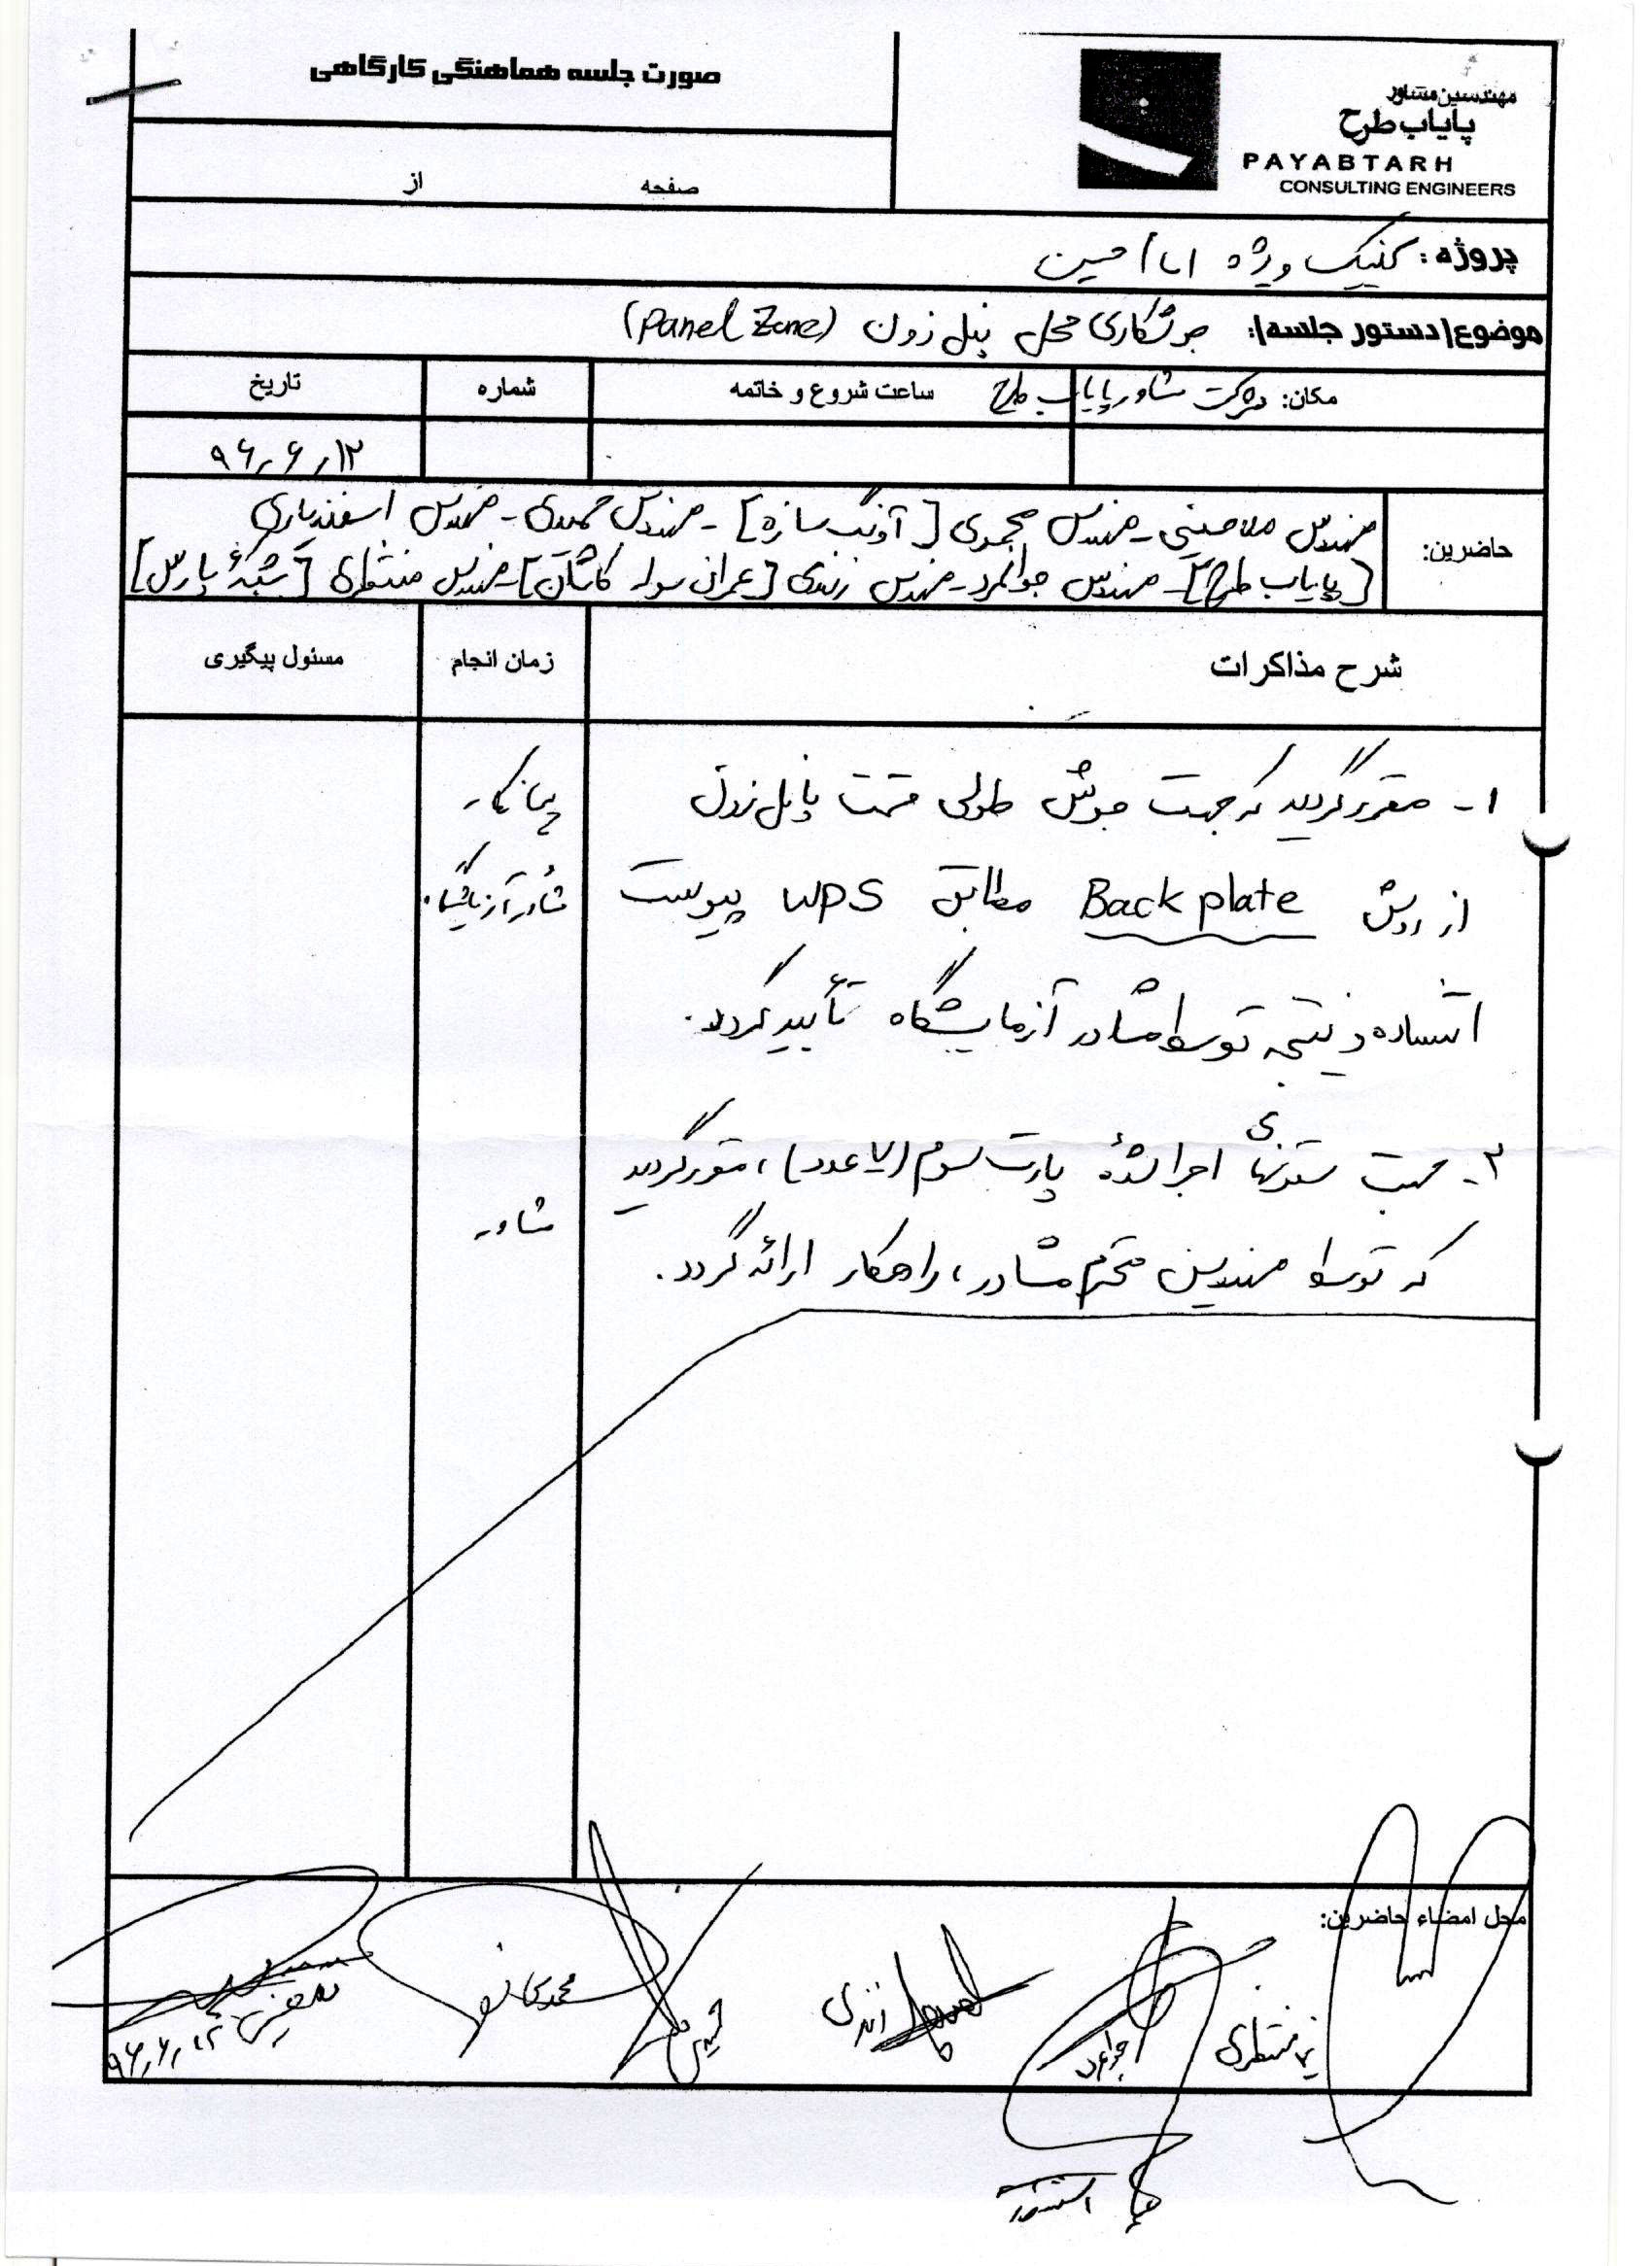 صورت جلسه هماهنگی کارگاهی
مهندسین مشاور
پایاب طرح
PAYABTARH
CONSULTING ENGINEERS
صفحه از
پروژه: کلینیک ویژه امین
موضوع/دستور جلسه: جوشکاری محل پنل زون (Panel Zone)
مکان: شرکت مشاور پایاب طرح ساعت شروع و خاتمه شماره تاریخ
۹۶٫۶٫۱۲
حاضرین: مهندس ملاحسینی - مهندس [آونگ سازه] - مهندس حمیدی - مهندس اسفندیاری
[پایاب طرح] - مهندس جوانمرد - مهندس زندی [عمران سوله کاشان] - مهندس منتظری [پارس]
شرح مذاکرات زمان انجام مسئول پیگیری
۱- مقرر گردید که جهت جوش طولی قسمت پانل زون پیمانکار
از روش Back plate مطابق WPS پیوست مشاور آزمایشگاه
استفاده و نتیجه توسط مشاور آزمایشگاه تأیید گردد.
۲- جهت ستونهای اجرا شدهٔ پارت سوم (۷ عدد)، مقرر گردید
که توسط مهندسین محترم مشاور، راهکار ارائه گردد. مشاور
محل امضاء حاضرین:
منتظری
زندی
۹۶٫۶٫۱۲